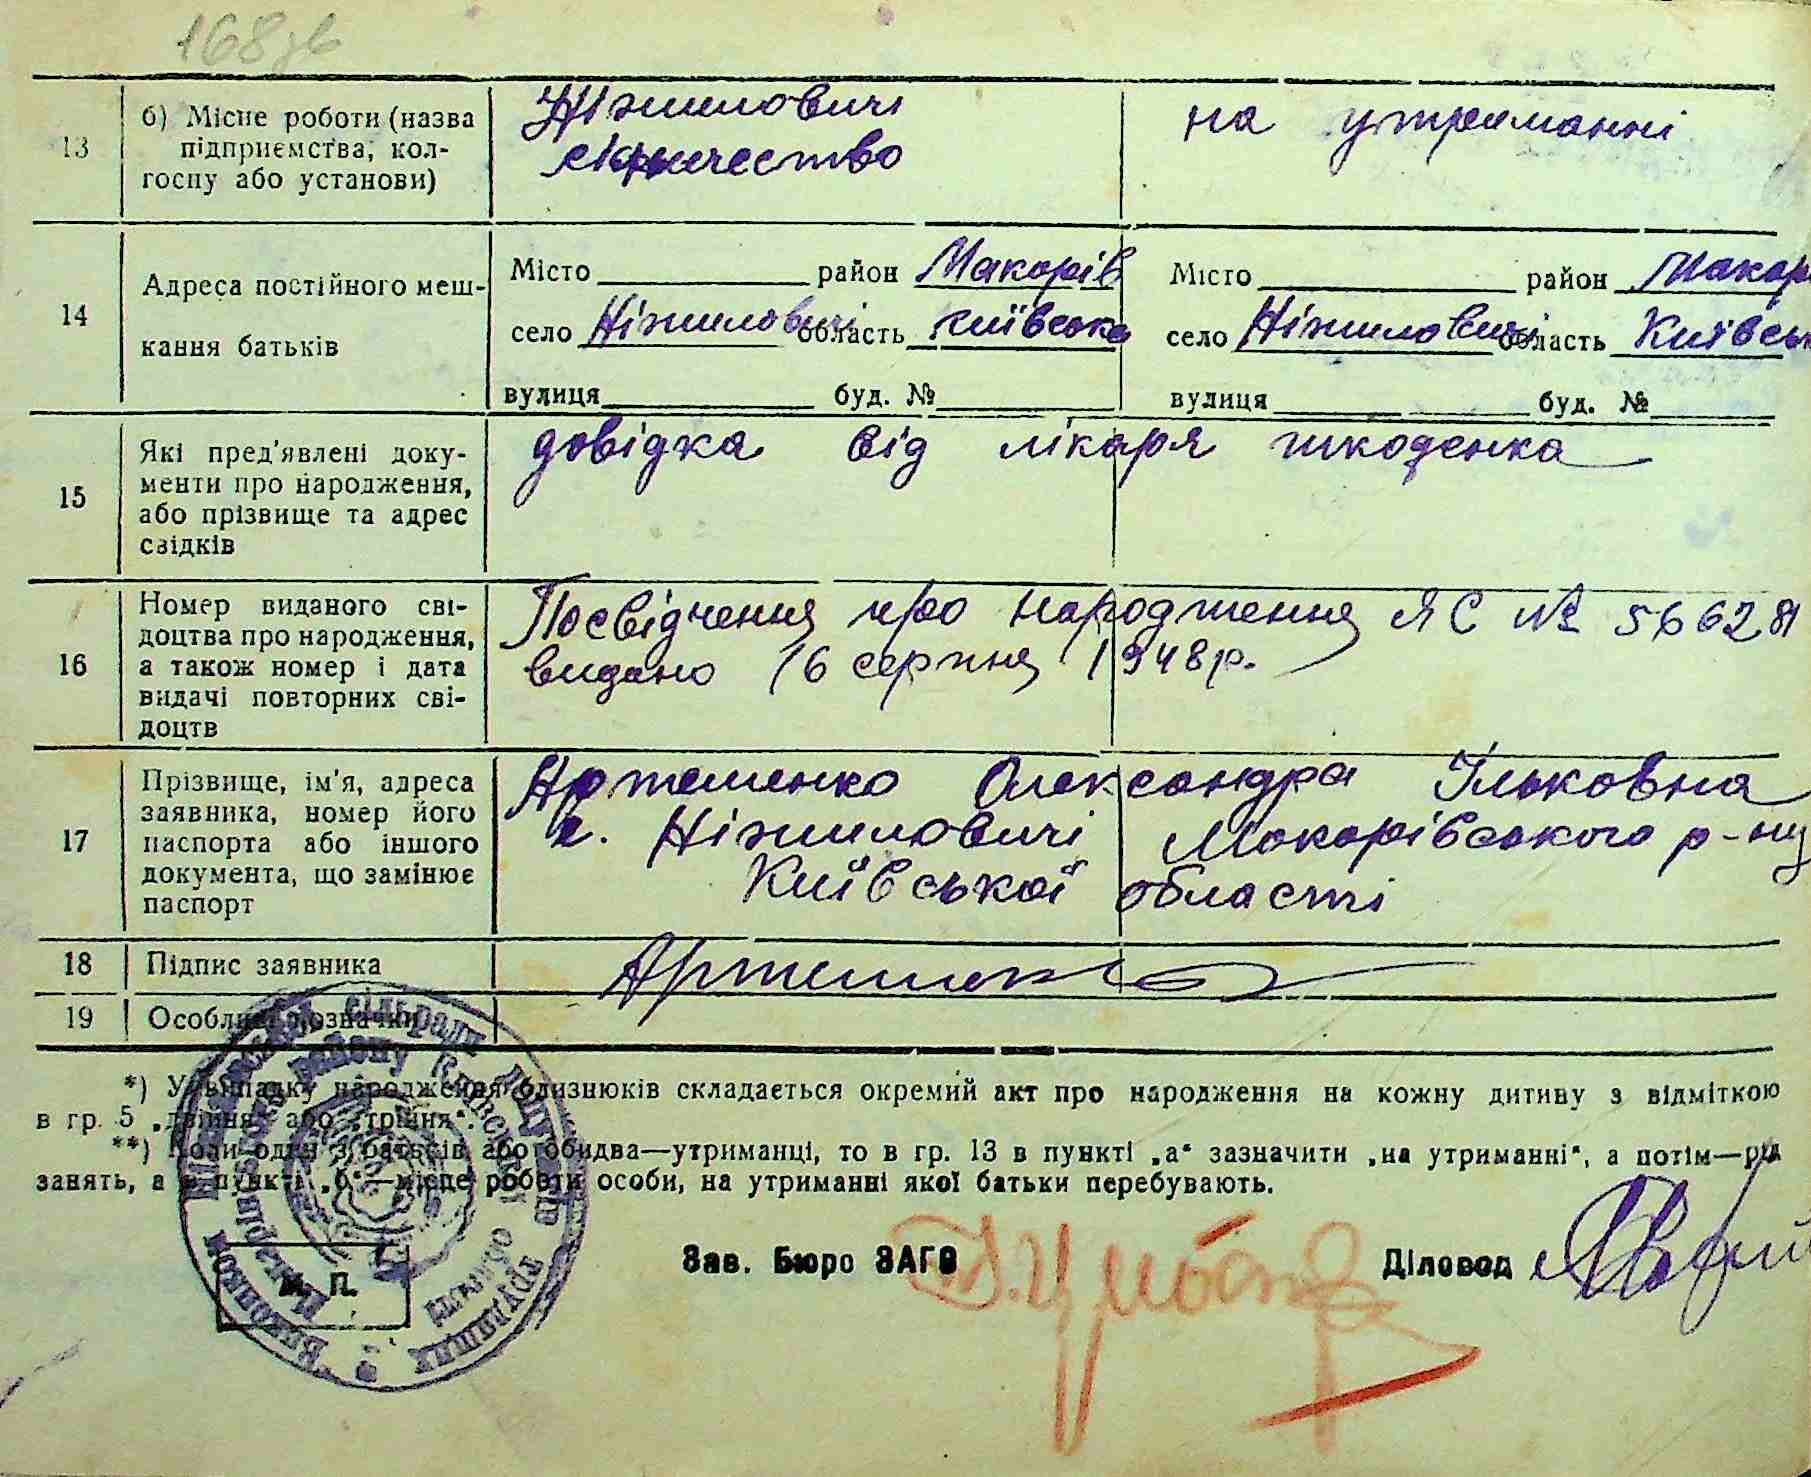 168зв
13
б) Місце роботи (назва
підприємства, кол-
госпу або установи)
Ніжиловичі
на утриманні
14
Адреса постійного меш-
кання батьків
Місто район Макарів
село Ніжиловичі область Київська
вулиця буд. №
Місто район Макар
село Ніжиловичі область Київськ
вулиця буд. №
15
Які пред'явлені доку-
менти про народження,
або прізвище та адрес
свідків
довідка від лікаря Шкоденка
16
Номер виданого сві-
доцтва про народження,
а також номер і дата
видачі повторних сві-
доцтв
Посвідчення про народження ЯС № 566281
видано 16 серпня 1948 р.
17
Прізвище, ім'я, адреса
заявника, номер його
паспорта або іншого
документа, що замінює
паспорт
Артеменко Олександра Ільковна
с. Ніжиловичі Макарівського р-ну
Київської області
18
Підпис заявника
Артеменко
19
Особливі позначки
*) У випадку народження близнюків складається окремий акт про народження на кожну дитину з відміткою
в гр. 5 „двійня" або „трійня".
**) Коли один з батьків або обидва—утриманці, то в гр. 13 в пункті „а" зазначити „на утриманні", а потім—рід
занять, а в пункті „б"—місце роботи особи, на утриманні якої батьки перебувають.
Зав. Бюро ЗАГС
Діловод
М. П.
Виконком сільради депутатів трудящих
Макарівського району Київської області